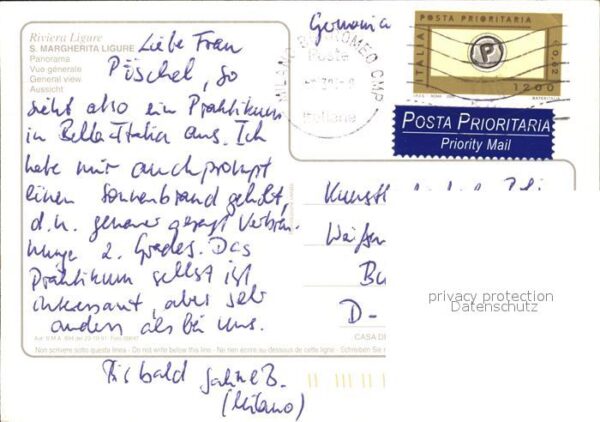 Riviera Ligure
S. MARGHERITA LIGURE
Panorama
Vue générale
General view
Aussicht
Liebe Frau
Püschel, so
sieht also ein Praktikum
in Bella Italia aus. Ich
habe mir auch prompt
einen Sonnenbrand geholt,
d.h. genauer gesagt Verbren-
nunge 2. Grades. Das
Praktikum selbst ist
interessant, aber sehr
anders als bei uns.
Bis bald
(Milano)
Non scrivere sotto questa linea - Do not write below this line - Ne rien écrire au dessous de cette ligne - Schreiben Sie
Germania
MILANO CMP
Poste
Italiane
POSTA PRIORITARIA
ITALIA
P
€ 0,62
1200
POSTA PRIORITARIA
Priority Mail
D-
CASA
privacy protection
Datenschutz